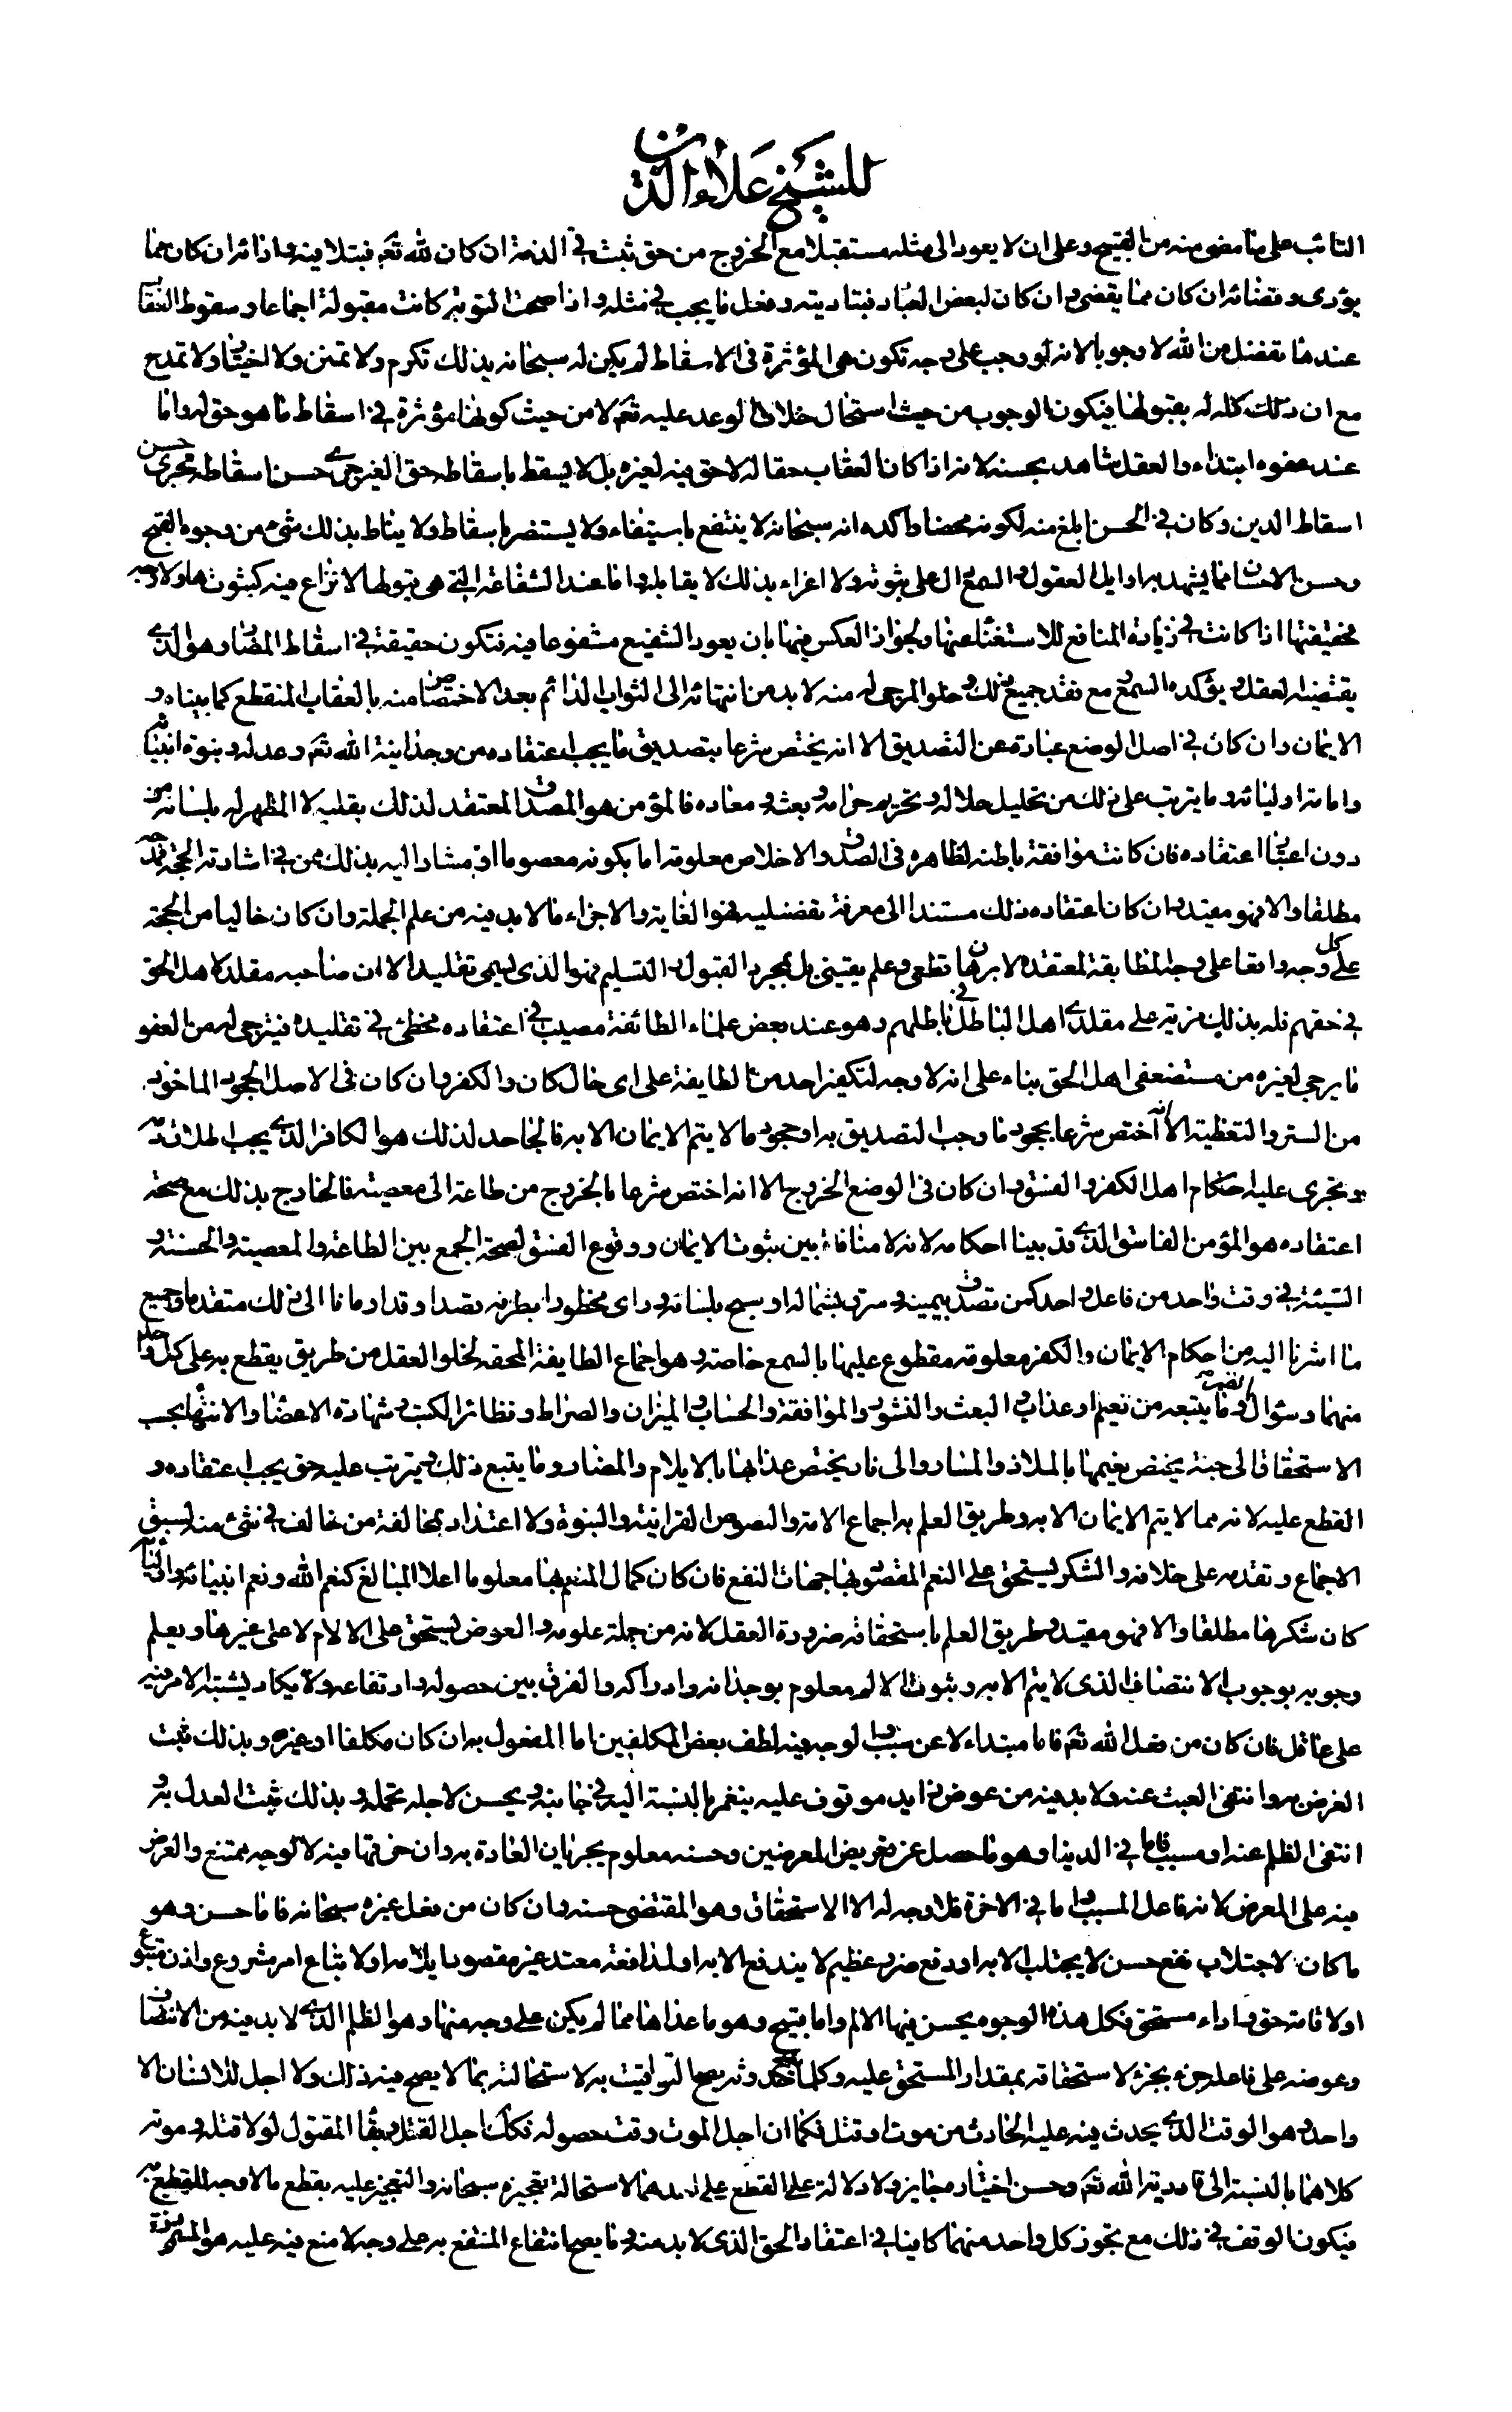 للشيخ علاء الدين
التائب على ما مضى منه من القبيح وعلى ان لا يعود الى مثله مستقبلا مع الخروج من حق ثبت في الذمة ان كان لله تعم فبتلافيه و اذائه ان كان مما
يؤدى وقضائه ان كان مما يقضى وان كان لبعض العباد فبتاديته وفعل ما يجب في مثله واذا صحت التوبة كانت مقبولة اجماعا وسقوط العقاب
عندها تفضل من الله لا وجوبا لانه لو وجب على وجه تكون هى المؤثرة فى الاسقاط لم يكن له سبحانه بذلك تكرم ولا تمنن ولا اختيار ولا تمدح
مع ان ذلك كله له بقبولها فيكون الوجوب من حيث استحال خلاف الوعد عليه تعم لا من حيث كونها مؤثرة في اسقاط ما هو حق له واما
عند عفوه ابتداء والعقل شاهد بحسنه لانه اذا كان العقاب حقا له لا حق فيه لغيره بل لا يسقط باسقاطه حق الغير جرى حسن اسقاطه مجرى حسن
اسقاط الدين وكان في الحسن ابلغ منه لكونه محضا واكده انه سبحانه لا ينتفع باستيفاء ولا يستضر باسقاط ولا يناط بذلك شئ من وجوه القبح
وحسن الاحسان مما يشهد به اوايل العقول والسمع دال على ثبوته ولا اغراء بذلك لا يقابله واما عند الشفاعة التى هى قبولها لا نزاع فيه كثبوتها ولا وجه
لحقيقتها اذا كانت في زيادة المنافع للاستغناء عنها ولجواز العكس فيها بان يعود الشفيع مشفوعا فيه فتكون حقيقة في اسقاط المضار وهو الذى
يقتضيه العقل ويؤكده السمع مع فقد جميع ذلك وخلو المرجى له منه لا بد من انتهائه الى الثواب الدائم بعد الاختصاص منه بالعقاب المنقطع كما بيناه و
الايمان وان كان في اصل الوضع عبارة عن التصديق الا انه يختص شرعا بتصديق ما يجب اعتقاده من وحدانية الله تعم وعدله ونبوة انبيائه
وامامة اوليائه وما يترتب على ذلك من تحليل حلاله وتحريم حرامه وبعث ومعاده فالمؤمن هو المصدق المعتقد لذلك بقلبه لا المظهر له بلسانه من
دون اعتبار اعتقاده فان كانت موافقة باطنه لظاهره فى الصدق والاخلاص معلومة اما بكونه معصوما او مشارا اليه بذلك ممن في اشارته الحجة مدحه
مطلقا والا فهو مقيد وان كان اعتقاده ذلك مستندا الى معرفة تفصيليه فهو الغاية والاجزاء فلا بد فيه من علم الجملة وان كان خاليا من الحجة
على كل وجه واقعا على وجه المطابقة لمعتقده لا برهان قطعى وعلم يقينى بل بمجرد القبول والتسليم فهو الذى يسمى تقليدا الا ان صاحبه مقلد لاهل الحق
في حقهم فله بذلك مزية على مقلدى اهل الباطل في باطلهم وهو عند بعض علماء الطائفة مصيب في اعتقاده مخطئ في تقليده فيترجى له من العفو
ما يرجى لغيره من مستضعفى اهل الحق بناء على انه لا وجه لتكفير احد من الطايفة على اى حال كان والكفر وان كان فى الاصل الجحود الماخوذ
من الستر والتغطية الا انه اختص شرعا بجحود ما وجب التصديق به او جحود ما لا يتم الايمان الا به فالجاحد لذلك هو الكافر الذى يجب
وتجرى عليه احكام اهل الكفر والفسق وان كان فى الوضع الخروج الا انه اختص شرعا بالخروج من طاعة الى معصية فالخارج بذلك مع صحة
اعتقاده هو المؤمن الفاسق الذى قد بينا احكامه لانه لا منافاة بين ثبوت الايمان ووقوع الفسق لصحة الجمع بين الطاعة والمعصية والحسنة و
السيئة في وقت واحد من فاعل واحد كمن تصدق بيمينه وسرق بشماله او سبح بلسانه وراى محظورا بطرفه قصدا وقد اومانا الى ذلك متقدما وجميع
ما اشرنا اليه من احكام الايمان والكفر معلومة مقطوع عليها بالسمع خاصة وهو اجماع الطايفة المحقه لخلو العقل من طريق يقطع به على كل واحد
منهما وسؤال القبر وما يتبعه من نعيم او عذاب والبعث والنشور والموافقة والحساب والميزان والصراط وتطائر الكتب وشهادة الاعضاء والانتهاء بحسب
الاستحقاق الى جنة يختص نعيمها بالملاذ والمسار والى نار يختص عذابها بالايلام والمضار وما يتبع ذلك ويترتب عليه حق يجب اعتقاده و
القطع عليه لانه مما لا يتم الايمان الا به وطريق العلم به اجماع الامة والنصوص القرانية والنبوة ولا اعتداد بمخالفة من خالف في شئ منه لسبق
الاجماع وتقدمه على خلافه والشكر يستحق على النعم المقصود بها جهات النفع فان كان كمال المنعم بها معلوما اعلا المبالغ كنعم الله ونعم انبيائه واوليائه
كان شكرها مطلقا والا فهو مقيد وطريق العلم باستحقاقه ضرورة العقل لانه من جملة علومه والعوض يستحق على الالام لا على غيرها ويعلم
وجوبه بوجوب الانتصاف الذى لا يتم الا به وثبوت الالم معلوم بوجدانه وادراكه والفرق بين حصوله وارتفاعه ولا يكاد يشتبه الامر فيه
على عاقل فان كان من فعل الله تعم فاما مبتداء لا عن سبب لوجه فيه لطف بعض المكلفين اما المفعول به ان كان مكلفا او غيره وبذلك ثبت
الغرض به وانتفى العبث عنه ولا بد فيه من عوض زايد موقوف عليه ينغمر بالنسبة اليه في جانبه ويحسن لاجله تحمله وبذلك ثبت العدل به و
انتفى الظلم عنه او مسببا فاما في الدنيا وهو ما حصل عن تعريض المعرضين وحسنه معلوم بجريان العادة به وان خرقها فيه لا لوجه ممتنع والعوض
فيه على المعرض لانه فاعل المسبب واما في الاخرة فلا وجه له الا الاستحقاق وهو المقتضى حسنه وان كان من فعل غيره سبحانه فاما حسن وهو
ما كان لاجتلاب نفع حسن لا يجتلب الا به او دفع ضرر عظيم لا يندفع الا به او لمدافعة معتد غير مقصود ايلامه او لاتباع امر مشروع واذن متبوع
او لاقامة حق واداء مستحق فكل هذه الوجوه يحسن فيها الالم واما قبيح وهو ما عداها مما لم يكن على وجه منها وهو الظلم الذى لا بد فيه من الانتصاف
وعوضه على فاعله لاستحقاقه بمقدار المستحق عليه وكلما حدوثه يصح التواقيت به لاستحالته بما لا يصح فيه ذلك ولا اجل للانسان الا
واحد وهو الوقت الذى يحدث فيه عليه الحادث من موت او قتل فكما ان اجل الموت وقت حصوله فكك اجل القتل وبقاء المقتول لولا قتله وموته
كلاهما بالنسبة الى قادرية الله تعم وحسن اختياره جايز ولا دلالة على القطع على احدهما لاستحالة تعجيزه سبحانه والتعجيز عليه بقطع ما لا وجه للقطع به
فيكون الوقف في ذلك مع تجوز كل واحد منهما كافيا في اعتقاد الحق الذى لا بد منه وما يصح انتفاع المنتفع به على وجه لا منع فيه عليه هو المسمى